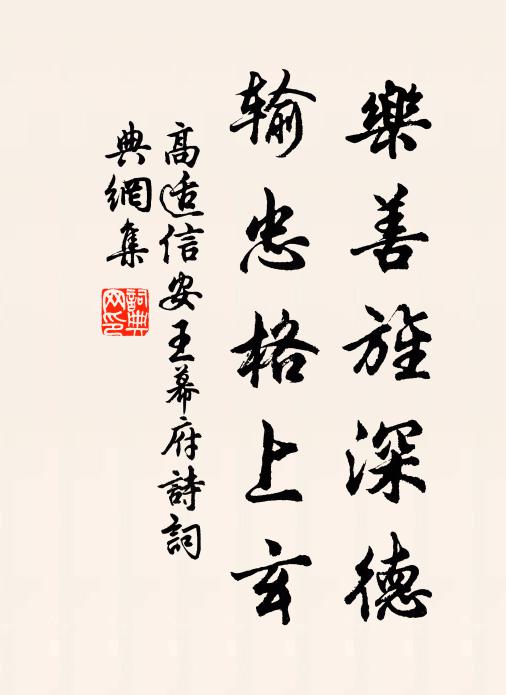 樂善旌深德
輸忠格上玄
高適信安王幕府詩詞
典網集
詞典
网印